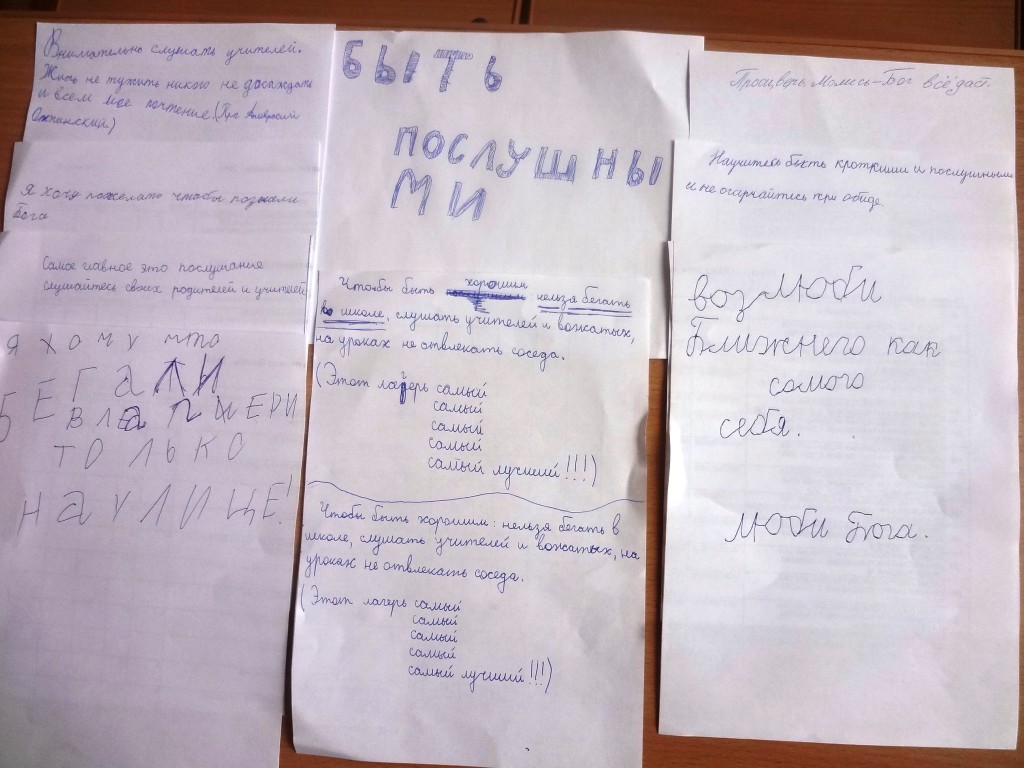 Внимательно слушать учителей.
Жить не тужить никого не досаждать
и всем мое почтение. (Прп Амвросий
Оптинский.)
Я хочу пожелать чтобы познали
Бога
Самое главное это послушания
слушайтесь своих родителей и учителей
Я хочу что
БЕГАЛИ
В ЛАГЕРИ
ТОЛЬКО
НА УЛИЦЕ!
БЫТЬ
ПОСЛУШНЫ
МИ
Чтобы быть хорошим нельзя бегать
в школе, слушать учителей и вожатых,
на уроках не отвлекать соседа.
(Этот лагерь самый
самый
самый
самый
самый лучший!!!)
Чтобы быть хорошим: нельзя бегать в
школе, слушать учителей и вожатых, на
уроках не отвлекать соседа.
(Этот лагерь самый
самый
самый
самый
самый лучший!!!)
Молись-Бог всё даст.
Научитесь быть кроткими и послушными
и не огорчайтесь при обиде.
возлюби
Ближнего как
самого
себя.
люби Бога.